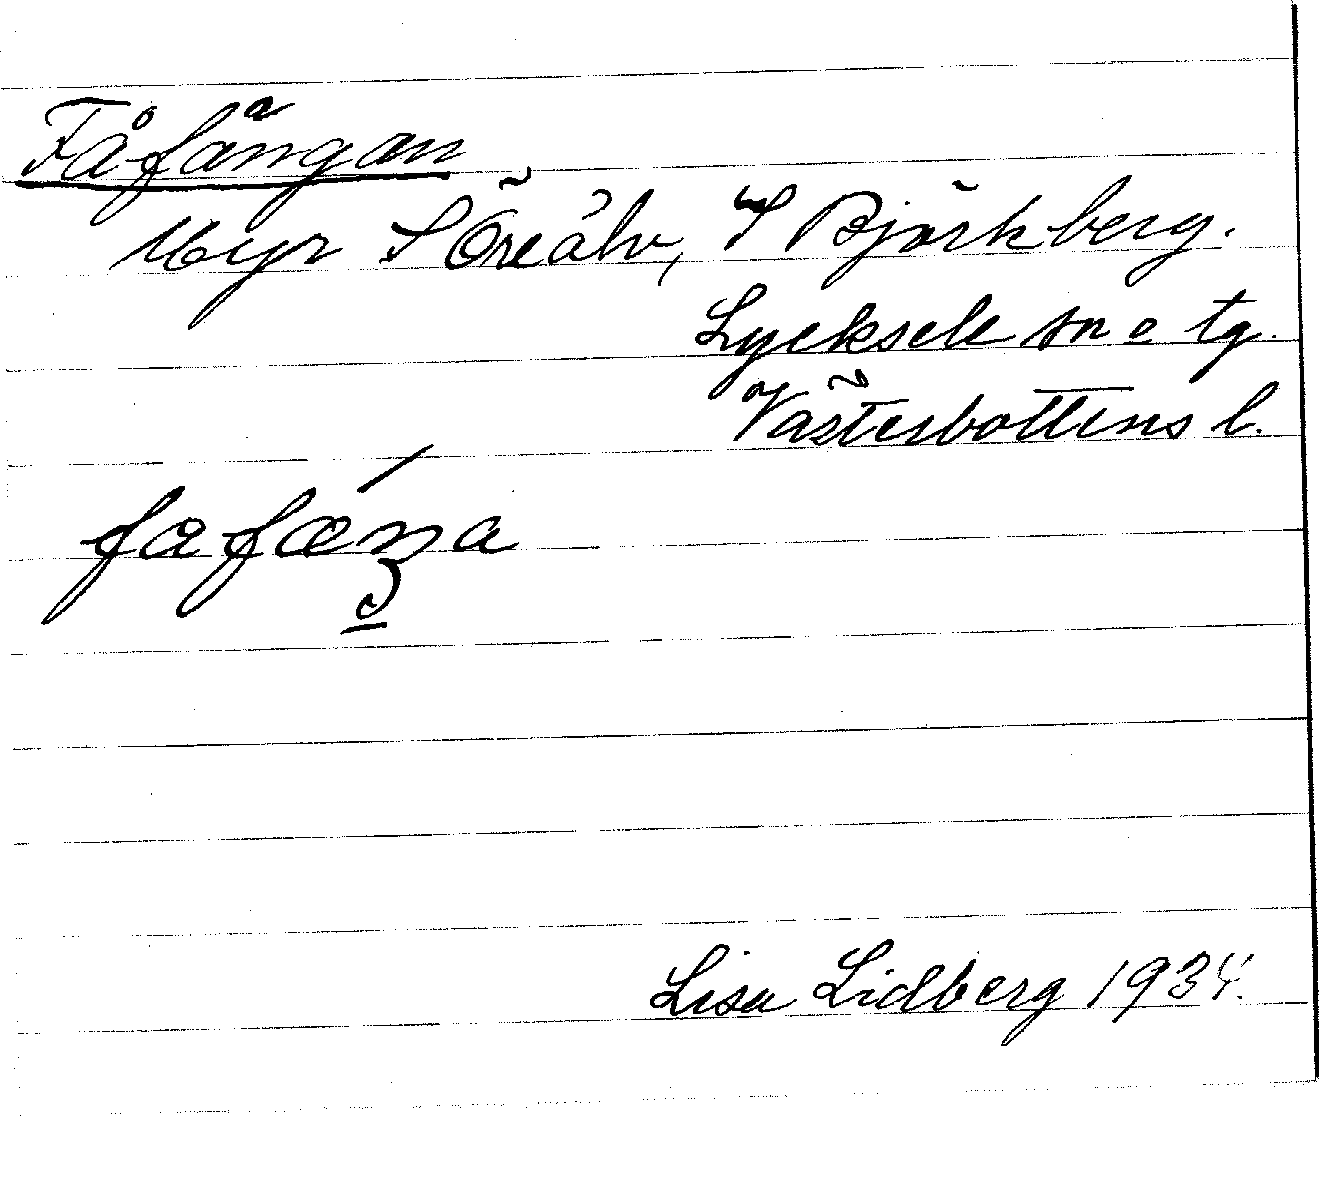 Fåfångan
Myr S Öreälv, S Björkberg.
Lycksele sn o tg.
Västerbottens l.
Lisa Lidberg 1934.